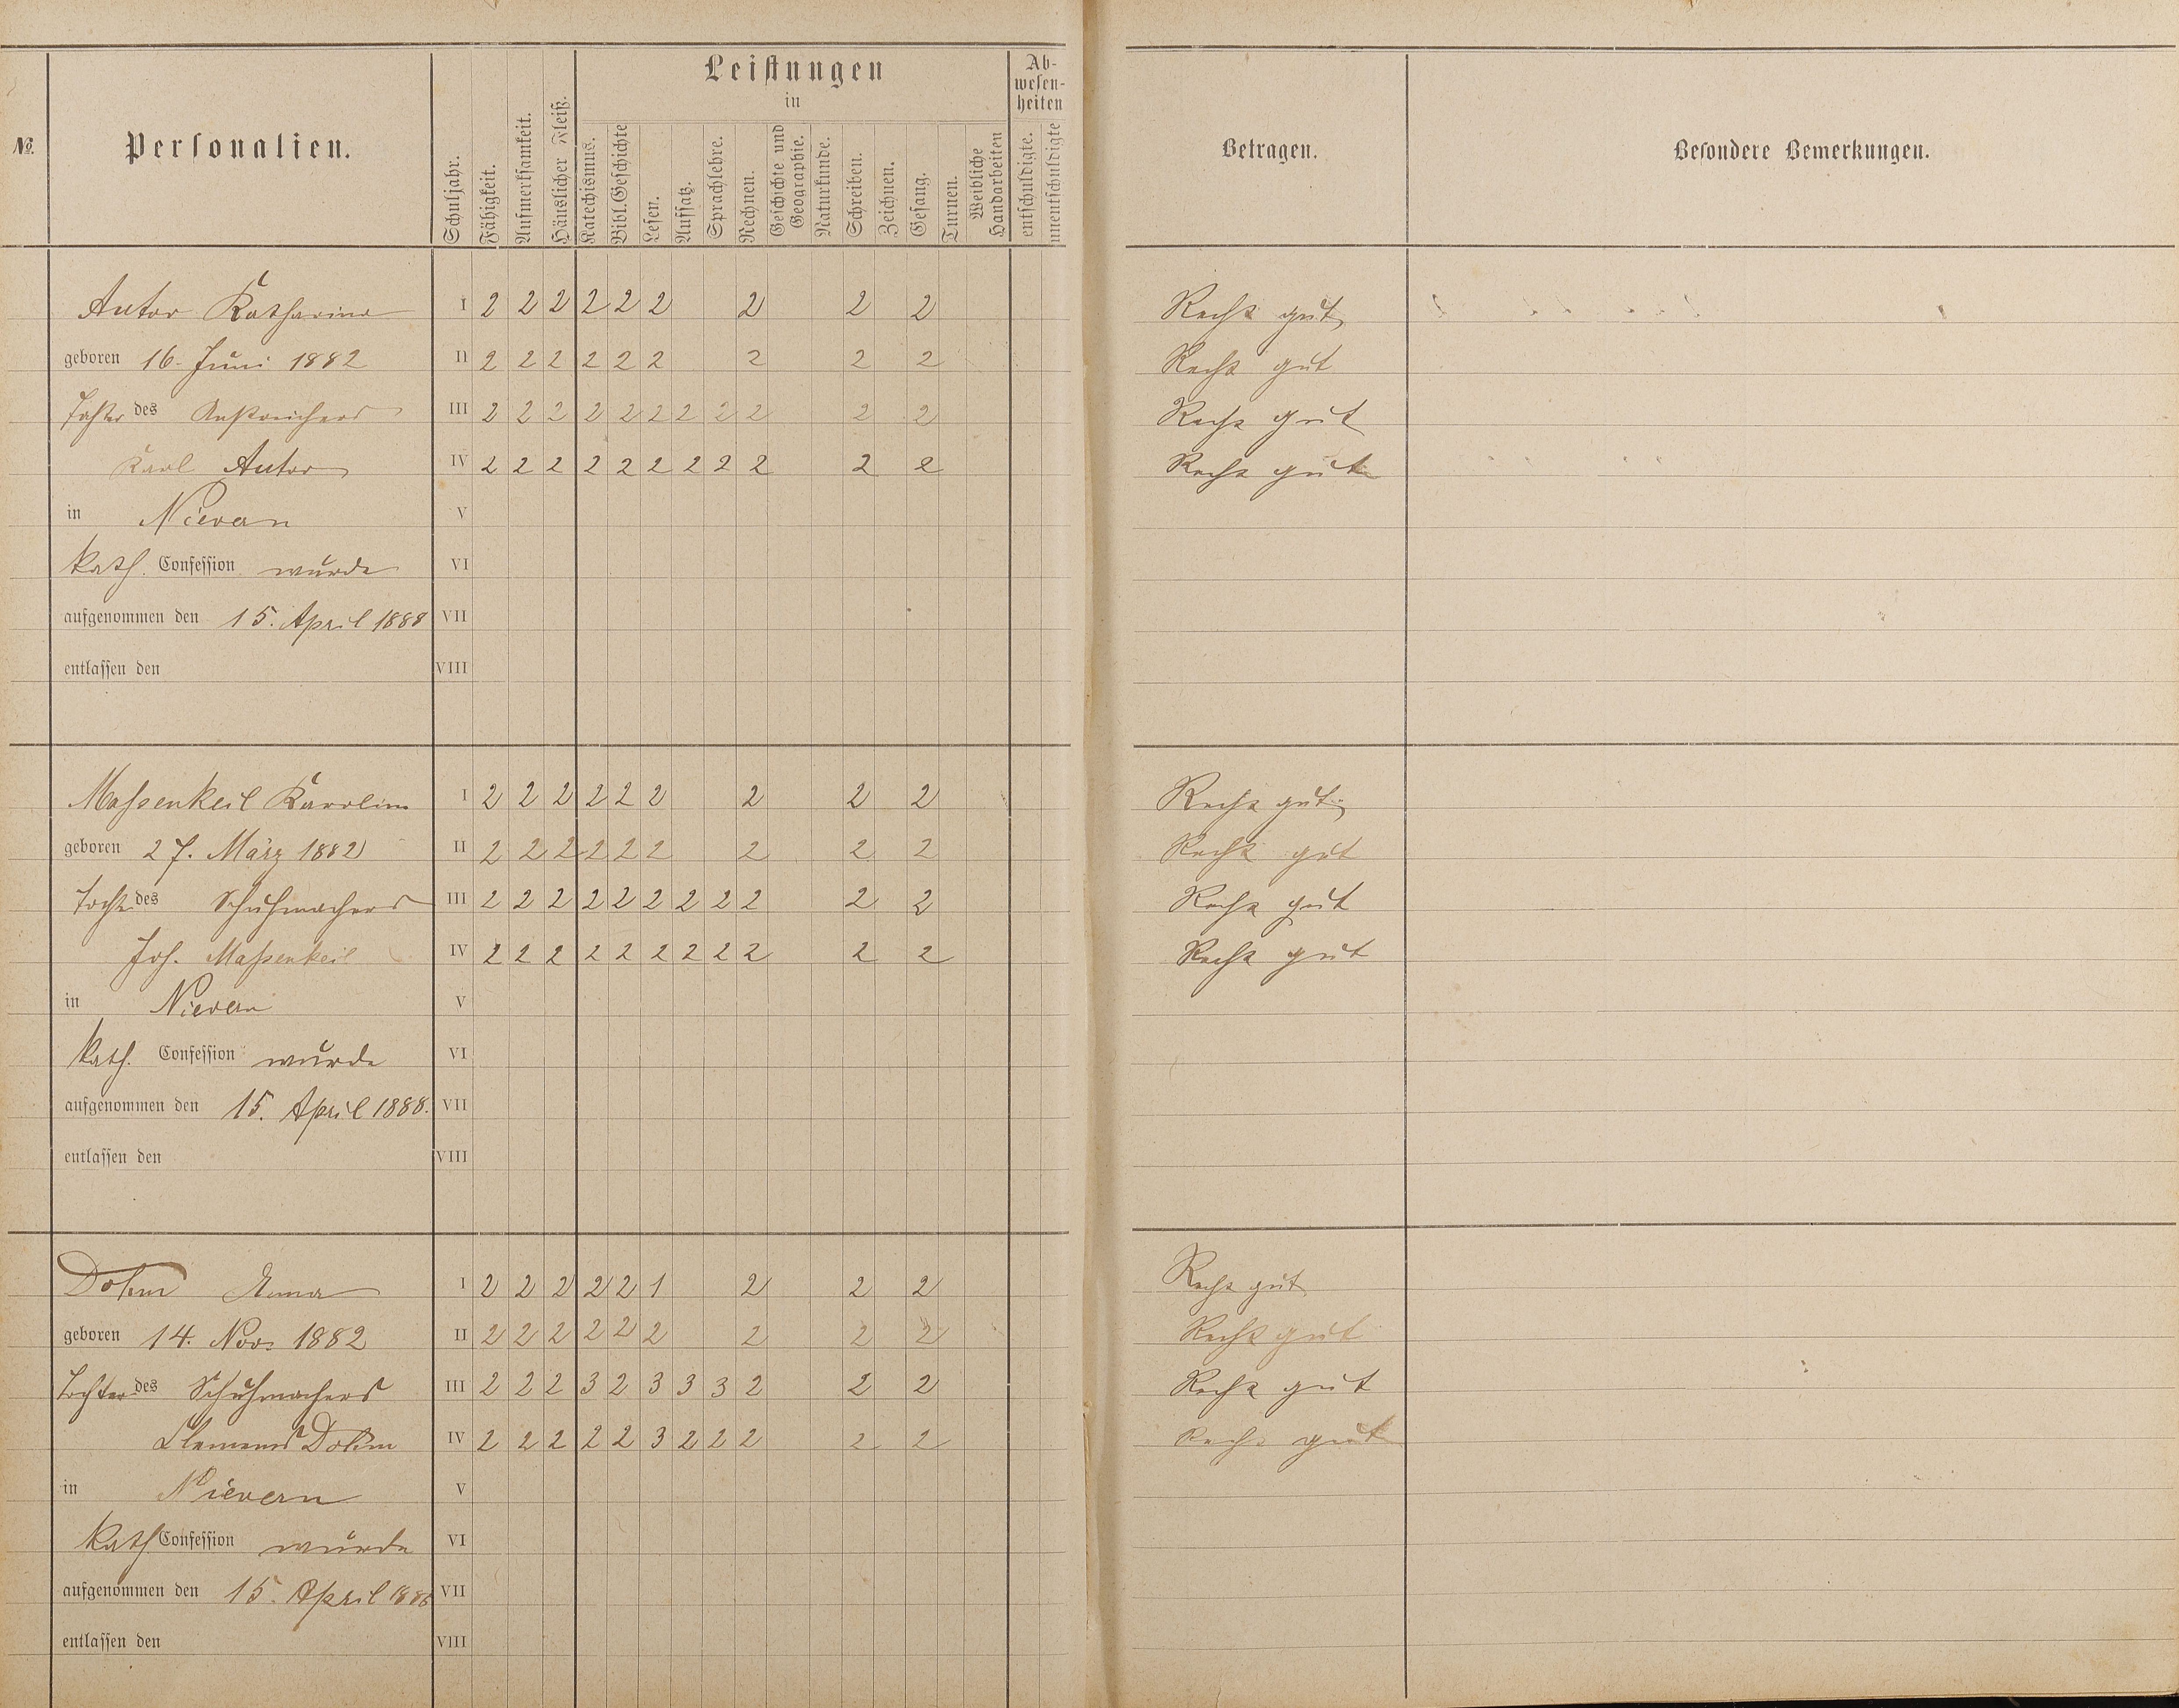 №.
Personalien.
Schuljahr.
Fähigkeit.
Aufmerksamkeit.
Häuslicher Fleiß.
Leistungen
in
Katechismus.
Bibl. Geschichte
Lesen.
Aufsatz.
Sprachlehre.
Rechnen.
Geschichte und
Geographie.
Naturkunde.
Schreiben.
Zeichnen.
Gesang.
Turnen.
Weibliche
Handarbeiten
Ab-
wesen-
heiten
entschuldigte.
unentschuldigte
Betragen.
Besondere Bemerkungen.
Antor Katharina I 2 2 2 2 2 2 2 2 2 Recht gut
geboren 16. Juni 1882 II 2 2 2 2 2 2 2 2 2 Recht gut
Tochter des Anstreichers III 2 2 2 2 2 2 2 2 2 2 2 Recht gut
Karl Antor IV 2 2 2 2 2 2 2 2 2 2 2 Recht gut
in Nievern V
kath. Confession wurde VI
aufgenommen den 15. April 1888 VII
entlassen den VIII
Maßenkeil Karolina I 2 2 2 2 2 2 2 2 2 Recht gut
geboren 27. März 1882 II 2 2 2 2 2 2 2 2 2 Recht gut
Tocht. des Schuhmachers III 2 2 2 2 2 2 2 2 2 2 2 Recht gut
Joh. Maßenkeil IV 2 2 2 2 2 2 2 2 2 2 2 Recht gut
in Nievern V
kath. Confession wurde VI
aufgenommen den 15. April 1888. VII
entlassen den VIII
Dohm Anna I 2 2 2 2 2 1 2 2 2 Recht gut
geboren 14. Nov. 1882 II 2 2 2 2 2 2 2 2 2 Recht gut
Tochter des Schuhmachers III 2 2 2 3 2 3 3 3 2 2 2 Recht gut
Clemens Dohm IV 2 2 2 2 2 3 2 2 2 2 2 Recht gut
in Nievern V
kath Confession wurde VI
aufgenommen den 15. April 1888 VII
entlassen den VIII